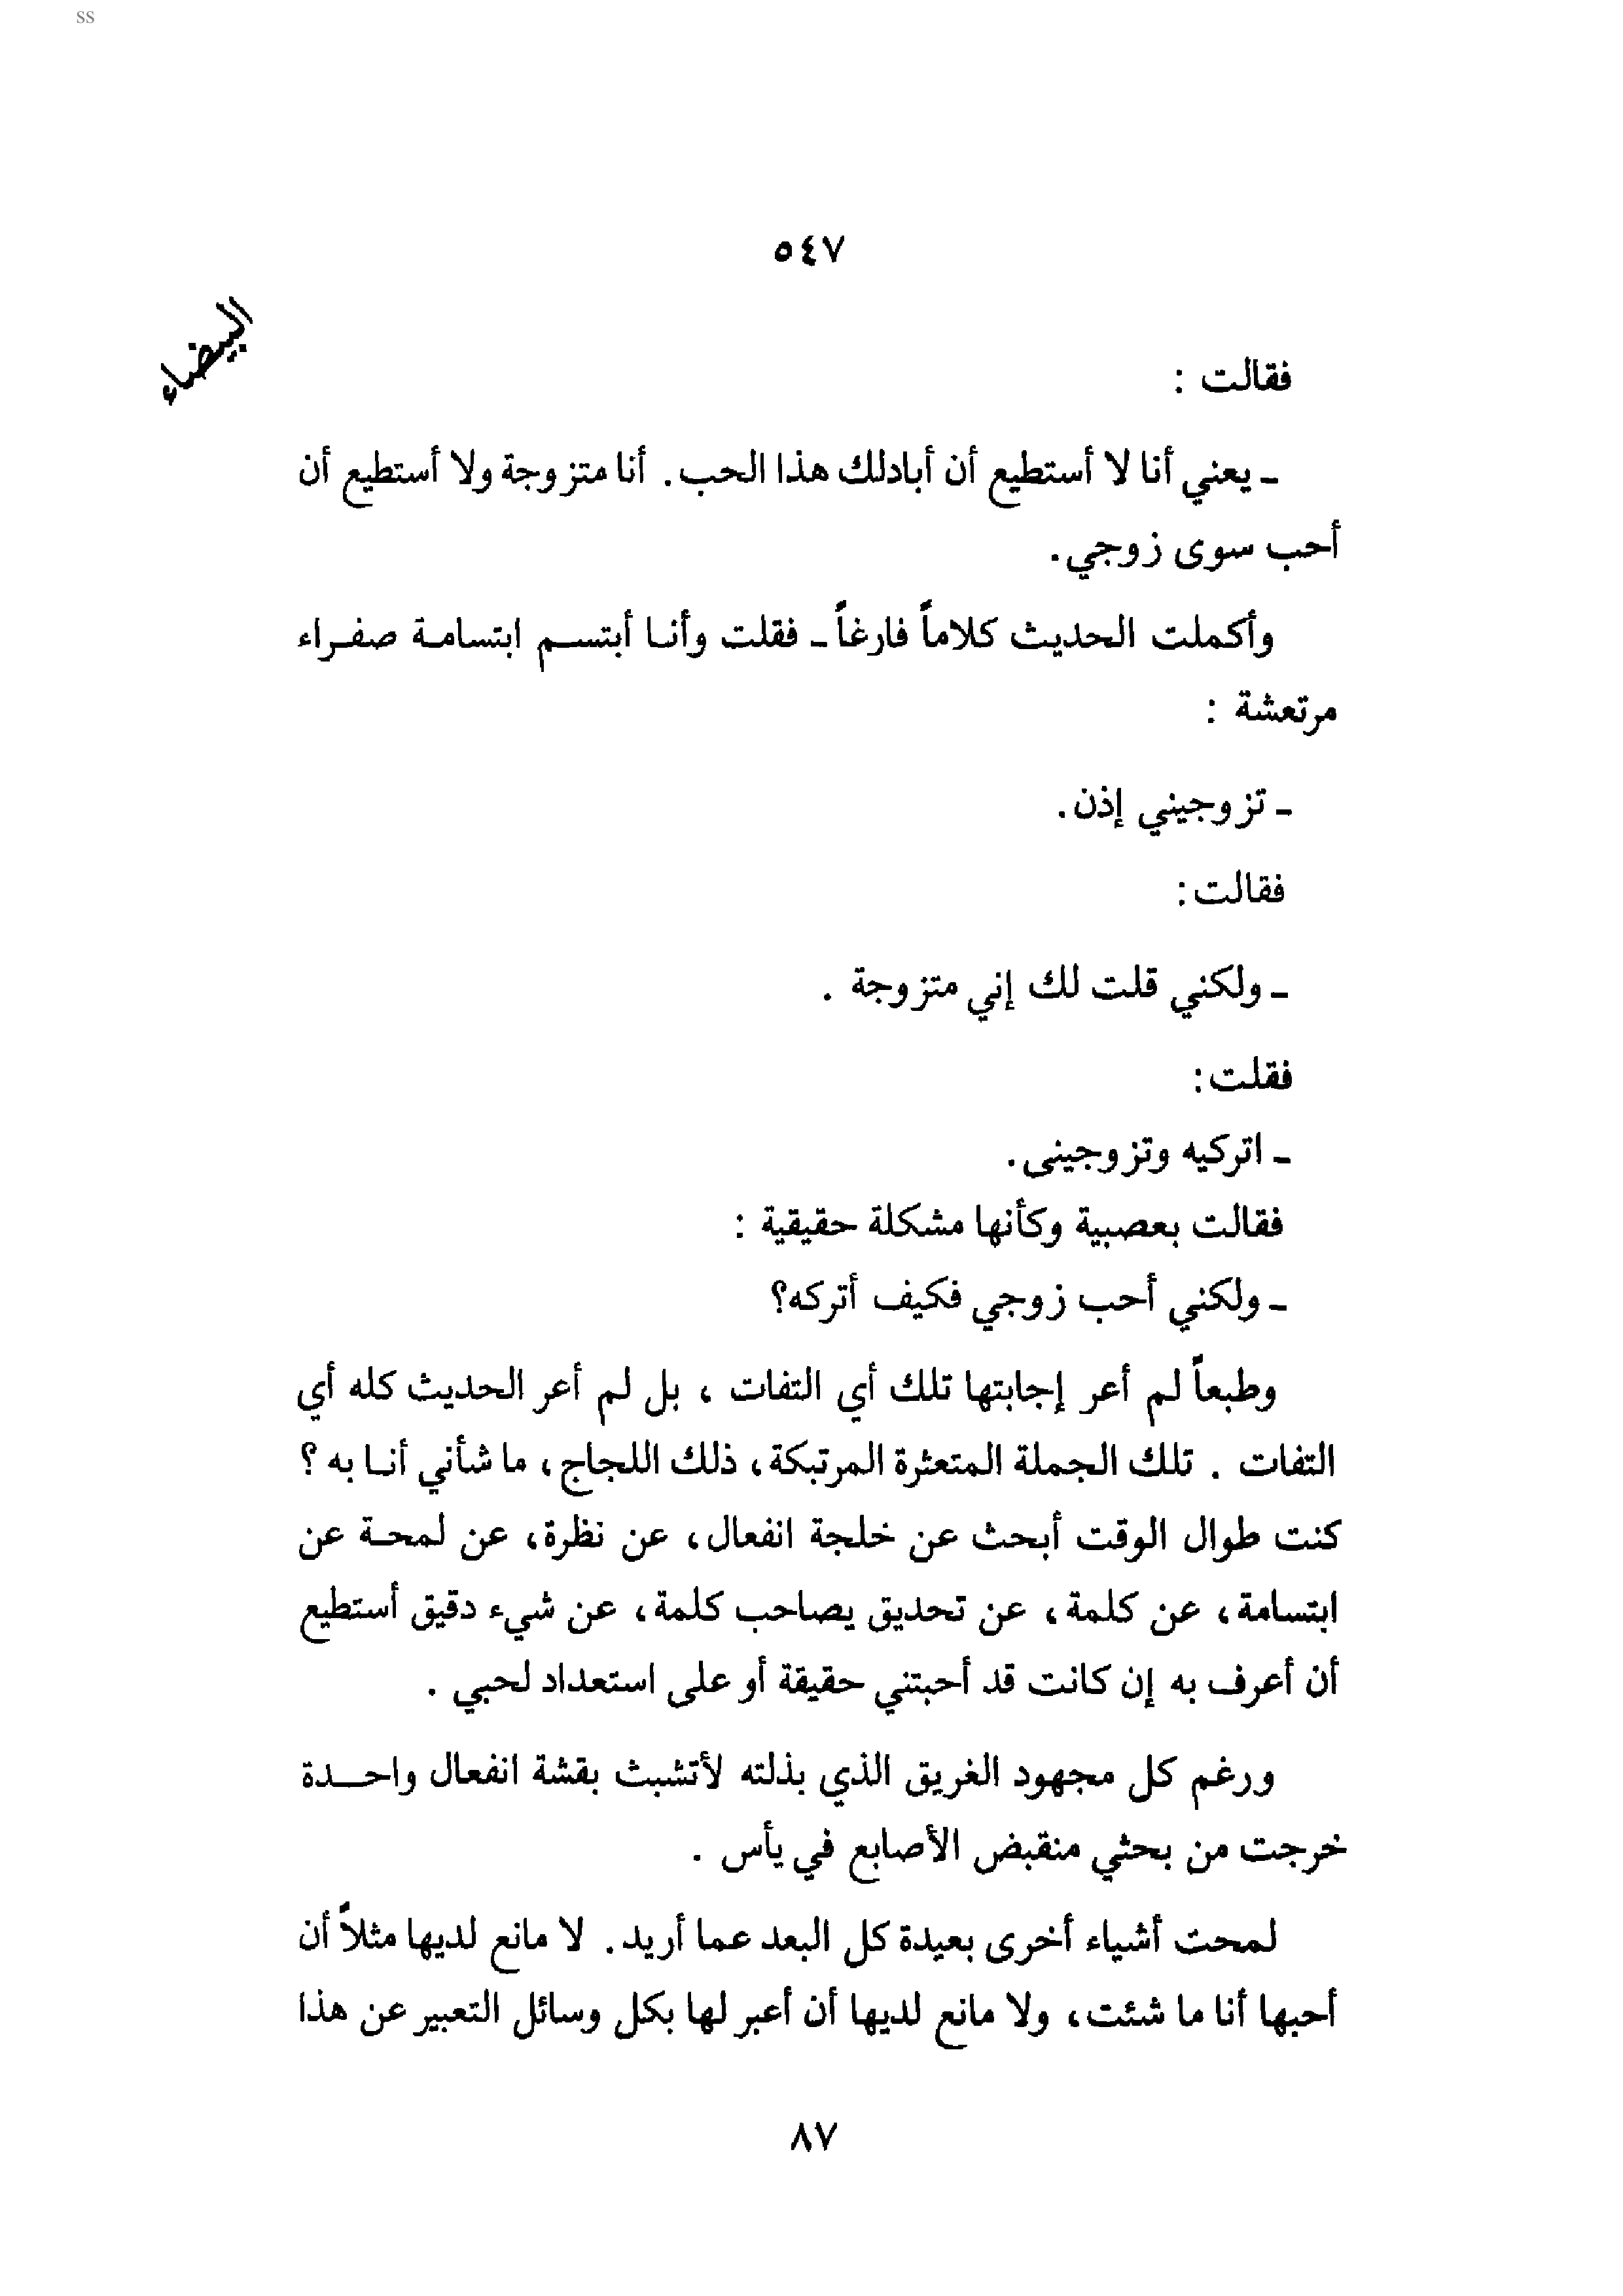 ss
٥٤٧
البيضاء
فقالت :
ـ يعني أنا لا أستطيع أن أبادلك هذا الحب. أنا متزوجة ولا أستطيع أن
أحب سوى زوجي.
وأكملت الحديث كلاماً فارغاً ـ فقلت وأنا أبتسم ابتسامة صفراء
مرتعشة :
ـ تزوجيني إذن.
فقالت:
ـ ولكني قلت لك إني متزوجة .
فقلت:
ـ اتركيه وتزوجينى.
فقالت بعصبية وكأنها مشكلة حقيقية :
ـ ولكني أحب زوجي فكيف أتركه؟
وطبعاً لم أعر إجابتها تلك أي التفات ، بل لم أعر الحديث كله أي
التفات . تلك الجملة المتعثرة المرتبكة، ذلك اللجاج، ما شأني أنا به ؟
كنت طوال الوقت أبحث عن خلجة انفعال، عن نظرة، عن لمحة عن
ابتسامة، عن كلمة، عن تحديق يصاحب كلمة، عن شيء دقيق أستطيع
أن أعرف به إن كانت قد أحبتني حقيقة أو على استعداد لحبي .
ورغم كل مجهود الغريق الذي بذلته لأتشبث بقشة انفعال واحدة
خرجت من بحثي منقبض الأصابع في يأس .
لمحت أشياء أخرى بعيدة كل البعد عما أريد. لا مانع لديها مثلاً أن
أحبها أنا ما شئت، ولا مانع لديها أن أعبر لها بكل وسائل التعبير عن هذا
٨٧